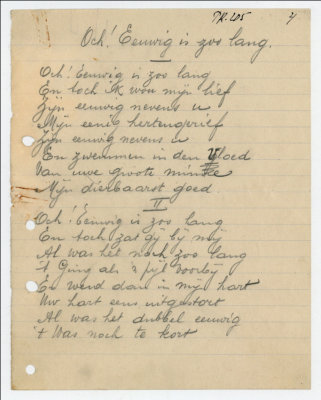 TR.205 4
Och! Eeuwig is zoo lang.
I
Och! Eeuwig is zoo lang
En toch ik wou mijn lief
Zijn eeuwig nevens u
Mijn eenig hertengerief
Zijn eeuwig nevens u
En zwemmen in den Vloed
Van uwe groote minne
Mijn dierbaarst goed
II
Och! Eeuwig is zoo lang
En toch zat gij bij mij
Al was het noch zoo lang
't Ging als 'n pijl voorbij
En werd dan in mijn hart
Uw hart eens uitgestort
Al was het dubbel eeuwig
't Was noch te kort